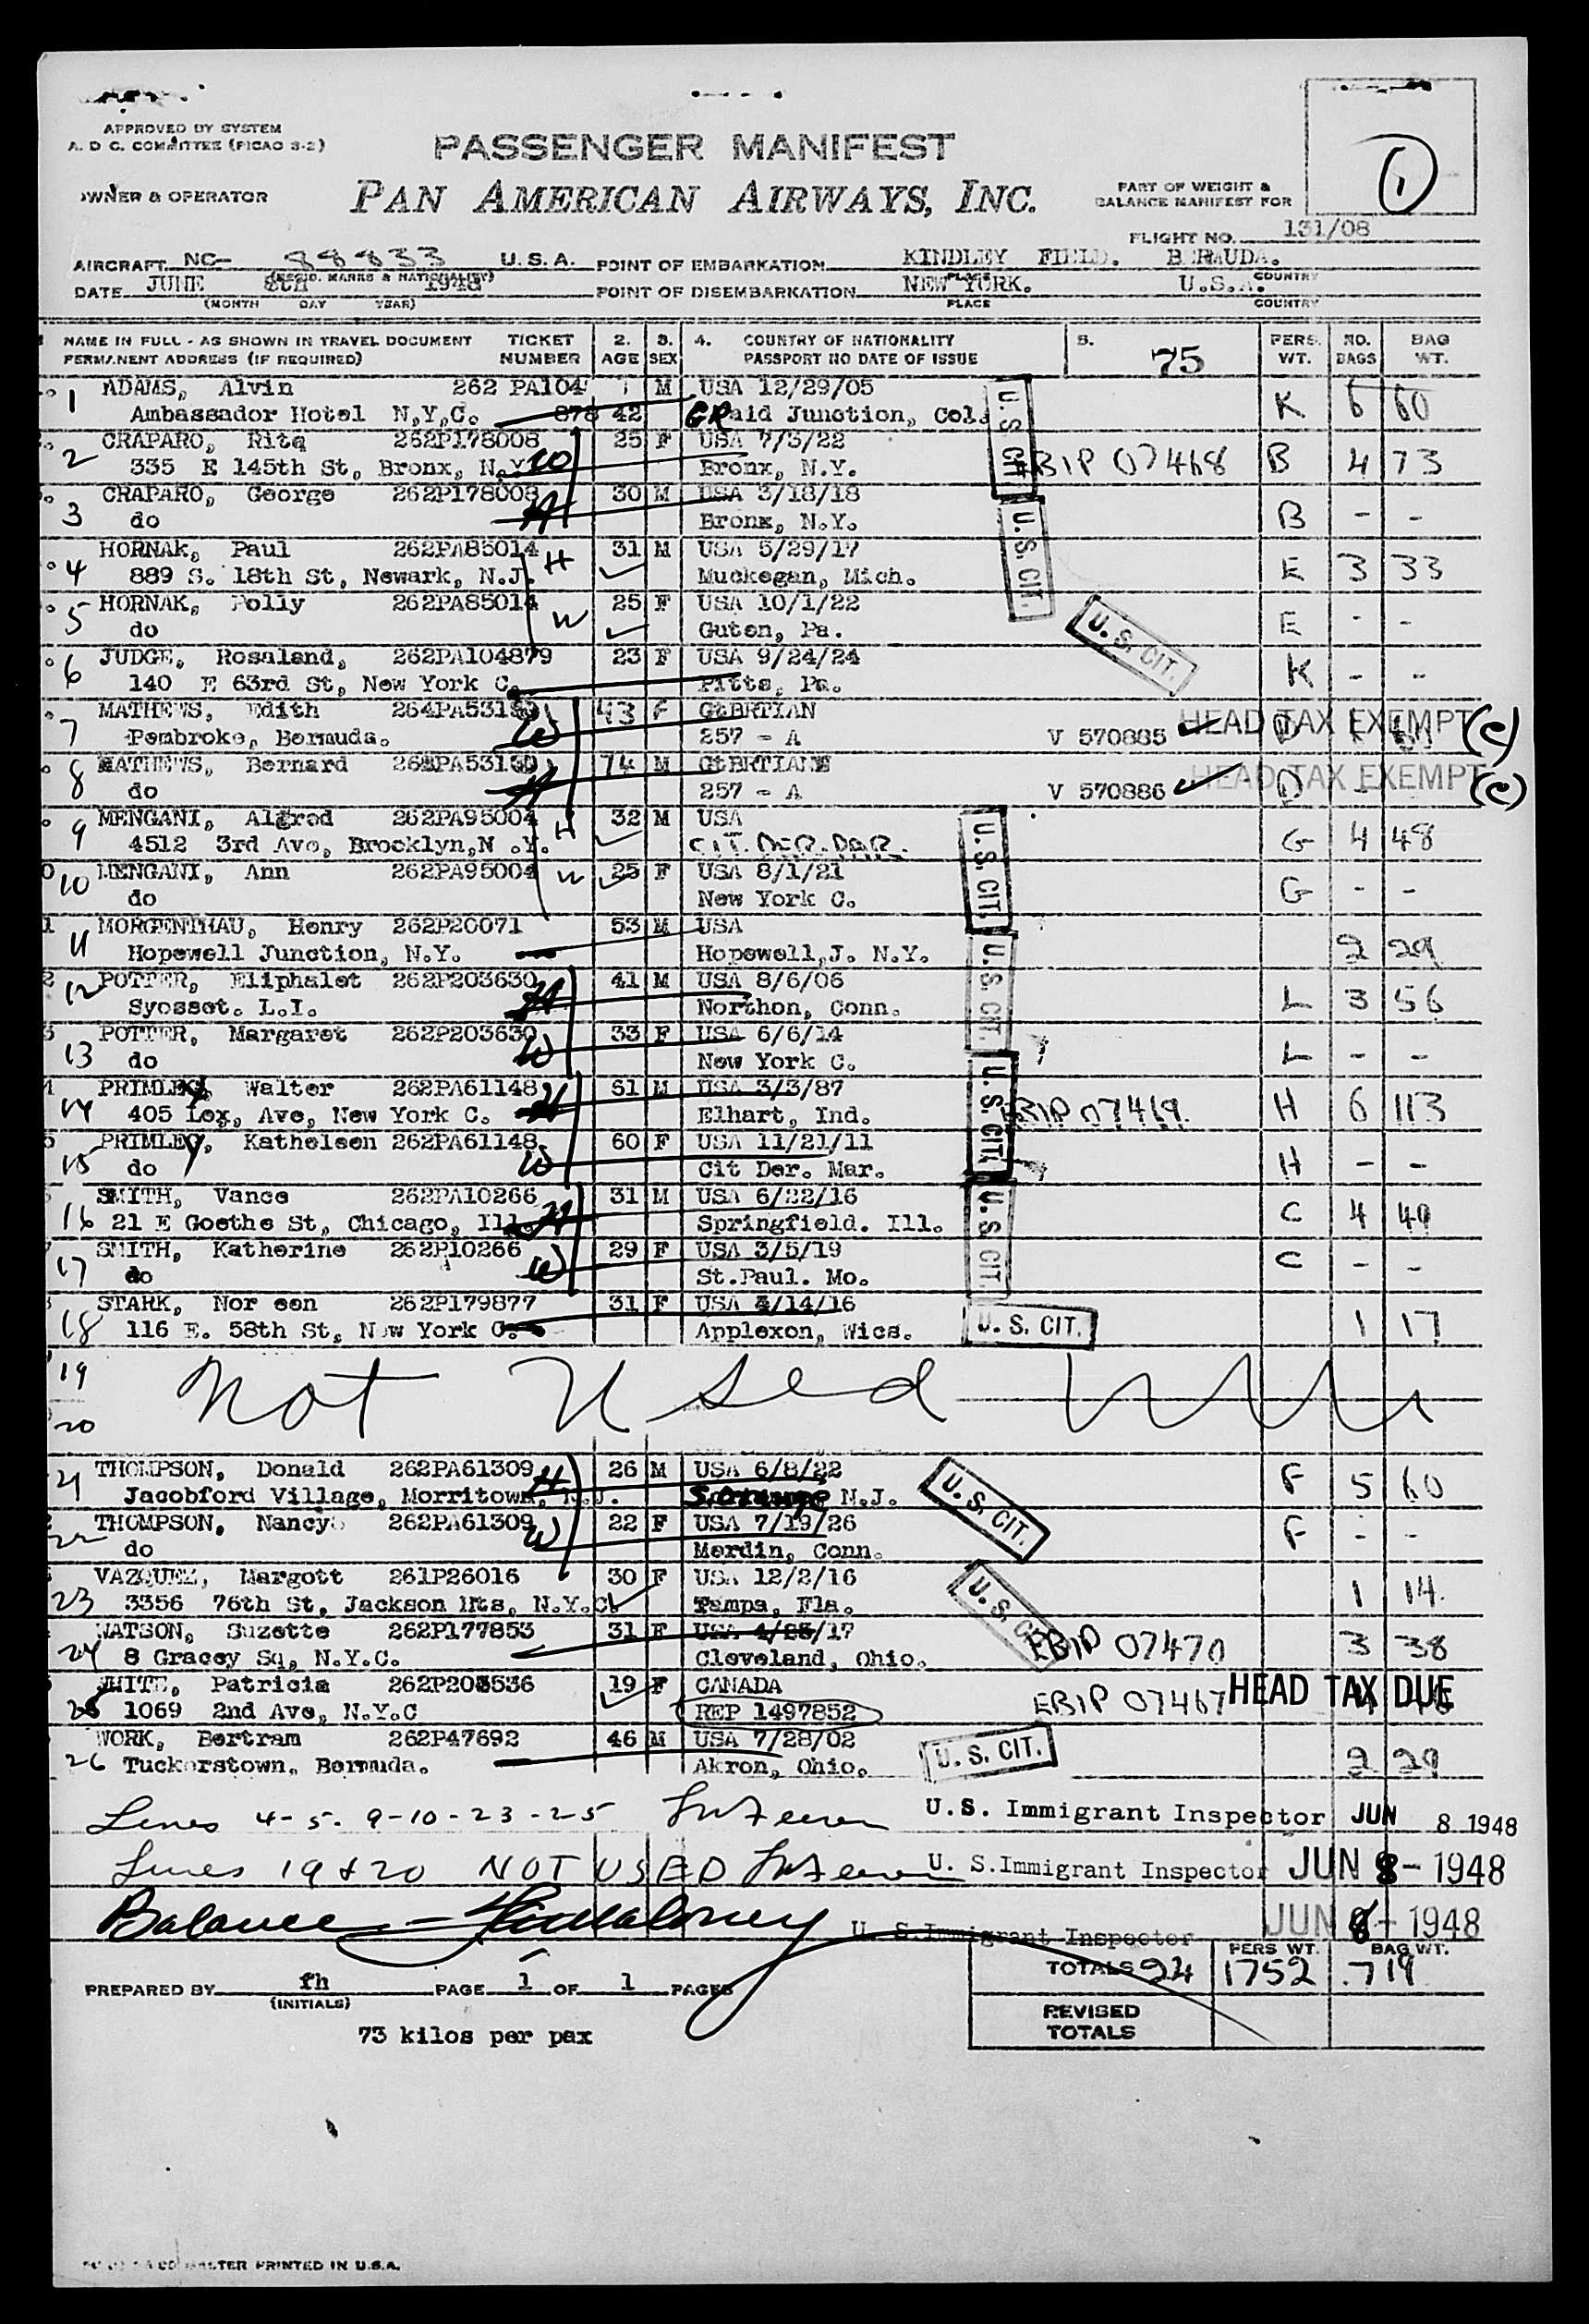 APPROVED BY SYSTEM
A. D C. COMMITTEE (PICAO 3-2)
PASSENGER MANIFEST
OWNER & OPERATOR
PAN AMERICAN AIRWAYS, INC.
PART OF WEIGHT &
BALANCE MANIFEST FOR
1
FLIGHT NO. 131/08
AIRCRAFT NC- 88833 U.S.A. POINT OF EMBARKATION KINDLEY FIELD. BERMUDA.
(REGIS. MARKS & NATIONALITY) PLACE COUNTRY
DATE JUNE 8th 1948 POINT OF DISEMBARKATION NEW YORK. U.S.A.
(MONTH DAY YEAR) PLACE COUNTRY
NAME IN FULL - AS SHOWN IN TRAVEL DOCUMENT TICKET 2. 3. 4. COUNTRY OF NATIONALITY 5. 75 PERS. NO. BAG
PERMANENT ADDRESS (IF REQUIRED) NUMBER AGE SEX PASSPORT NO DATE OF ISSUE WT. BAGS WT.
1 ADAMS, Alvin 262 PA104 M USA 12/29/05 K 6 60
Ambassador Hotel N,Y,C. 878 42 GRaid Junction, Col. U.S. CIT.
2 CRAPARO, Rita 262P178008 25 F USA 7/3/22 EBIP 07468 B 4 73
335 E 145th St, Bronx, N.Y. W Bronx, N.Y.
3 CRAPARO, George 262P178008 30 M USA 3/18/18 B - -
do H Bronx, N.Y. U.S. CIT.
4 HORNAK, Paul 262PA85014 H 31 M USA 5/29/17 E 3 33
889 S. 18th St, Newark, N.J. Muckegan, Mich.
5 HORNAK, Polly 262PA85014 W 25 F USA 10/1/22 E - -
do Guten, Pa. U.S. CIT.
6 JUDGE, Rosaland, 262PA104879 23 F USA 9/24/24 K - -
140 E 63rd St, New York C. Pitts, Pa.
7 MATHEWS, Edith 264PA531 43 F GtBRTIAN HEAD TAX EXEMPT (c)
Pembroke, Bermuda. W 257 - A V 570885 D
8 MATHEWS, Bernard 74 M GtBRTIAN HEAD TAX EXEMPT (c)
do H 257 - A V 570886 D
9 MENGANI, Alfred 262PA95004 H 32 M USA G 4 48
4512 3rd Ave, Brooklyn,N .Y. CIT. DER. PAR. U.S. CIT.
10 MENGANI, Ann 262PA95004 W 25 F USA 8/1/21 G - -
do New York C.
11 MORGENTHAU, Henry 262P20071 53 M USA 2 29
Hopewell Junction, N.Y. Hopewell,J. N.Y. U.S. CIT.
12 POTTER, Eliphalet 262P203630 H 41 M USA 8/6/06 L 3 56
Syosset. L.I. Northon, Conn.
13 POTTER, Margaret 262P203630 W 33 F USA 6/6/14 L - -
do New York C.
14 PRIMLEY, Walter 262PA61148 H 61 M USA 3/3/87 EBIP 07469 H 6 113
405 Lex, Ave, New York C. Elhart, Ind. U.S. CIT.
15 PRIMLEY, Katheleen 262PA61148 W 60 F USA 11/21/11 H - -
do Cit Der. Mar.
16 SMITH, Vance 262PA10266 H 31 M USA 6/22/16 C 4 49
21 E Goethe St, Chicago, Ill. Springfield. Ill. U.S. CIT.
17 SMITH, Katherine 262P10266 W 29 F USA 3/5/19 C - -
do St.Paul. Mo.
18 STARK, Nor een 262P179877 31 F USA 4/14/16 U.S. CIT. 1 17
116 E. 58th St, New York C. Applexon, Wics.
19 Not Used
20
21 THOMPSON, Donald 262PA61309 H 26 M USA 6/8/22 F 5 60
Jacobford Village, Morritown, N.J. S.Orange N.J. U.S. CIT.
22 THOMPSON, Nancy 262PA61309 W 22 F USA 7/19/26 F - -
do Merdin, Conn.
23 VAZQUEZ, Margott 261P26016 30 F USA 12/2/16 1 14
3356 76th St, Jackson Hts, N.Y.C. Tampa, Fla. U.S. CIT.
24 WATSON, Suzette 262P177853 31 F USA 4/25/17 EBIP 07470 3 38
8 Gracey Sq, N.Y.C. Cleveland, Ohio.
25 WHITE, Patricia 262P203536 19 F CANADA EBIP 07467 HEAD TAX DUE
1069 2nd Ave, N.Y.C REP 1497852
26 WORK, Bertram 262P47692 46 M USA 7/28/02 U.S. CIT. 2 29
Tuckerstown, Bermuda. Akron, Ohio.
Lines 4-5. 9-10-23-25 U.S. Immigrant Inspector JUN 8 1948
Lines 19 & 20 NOT USED U. S.Immigrant Inspector JUN 8-1948
Balance - U. S.Immigrant Inspector JUN 8-1948
PERS WT. BAG WT.
TOTALS 24 1752 719
PREPARED BY fh PAGE 1 OF 1 PAGES
(INITIALS)
REVISED
TOTALS
73 kilos per pax
MASTER PRINTED IN U.S.A.